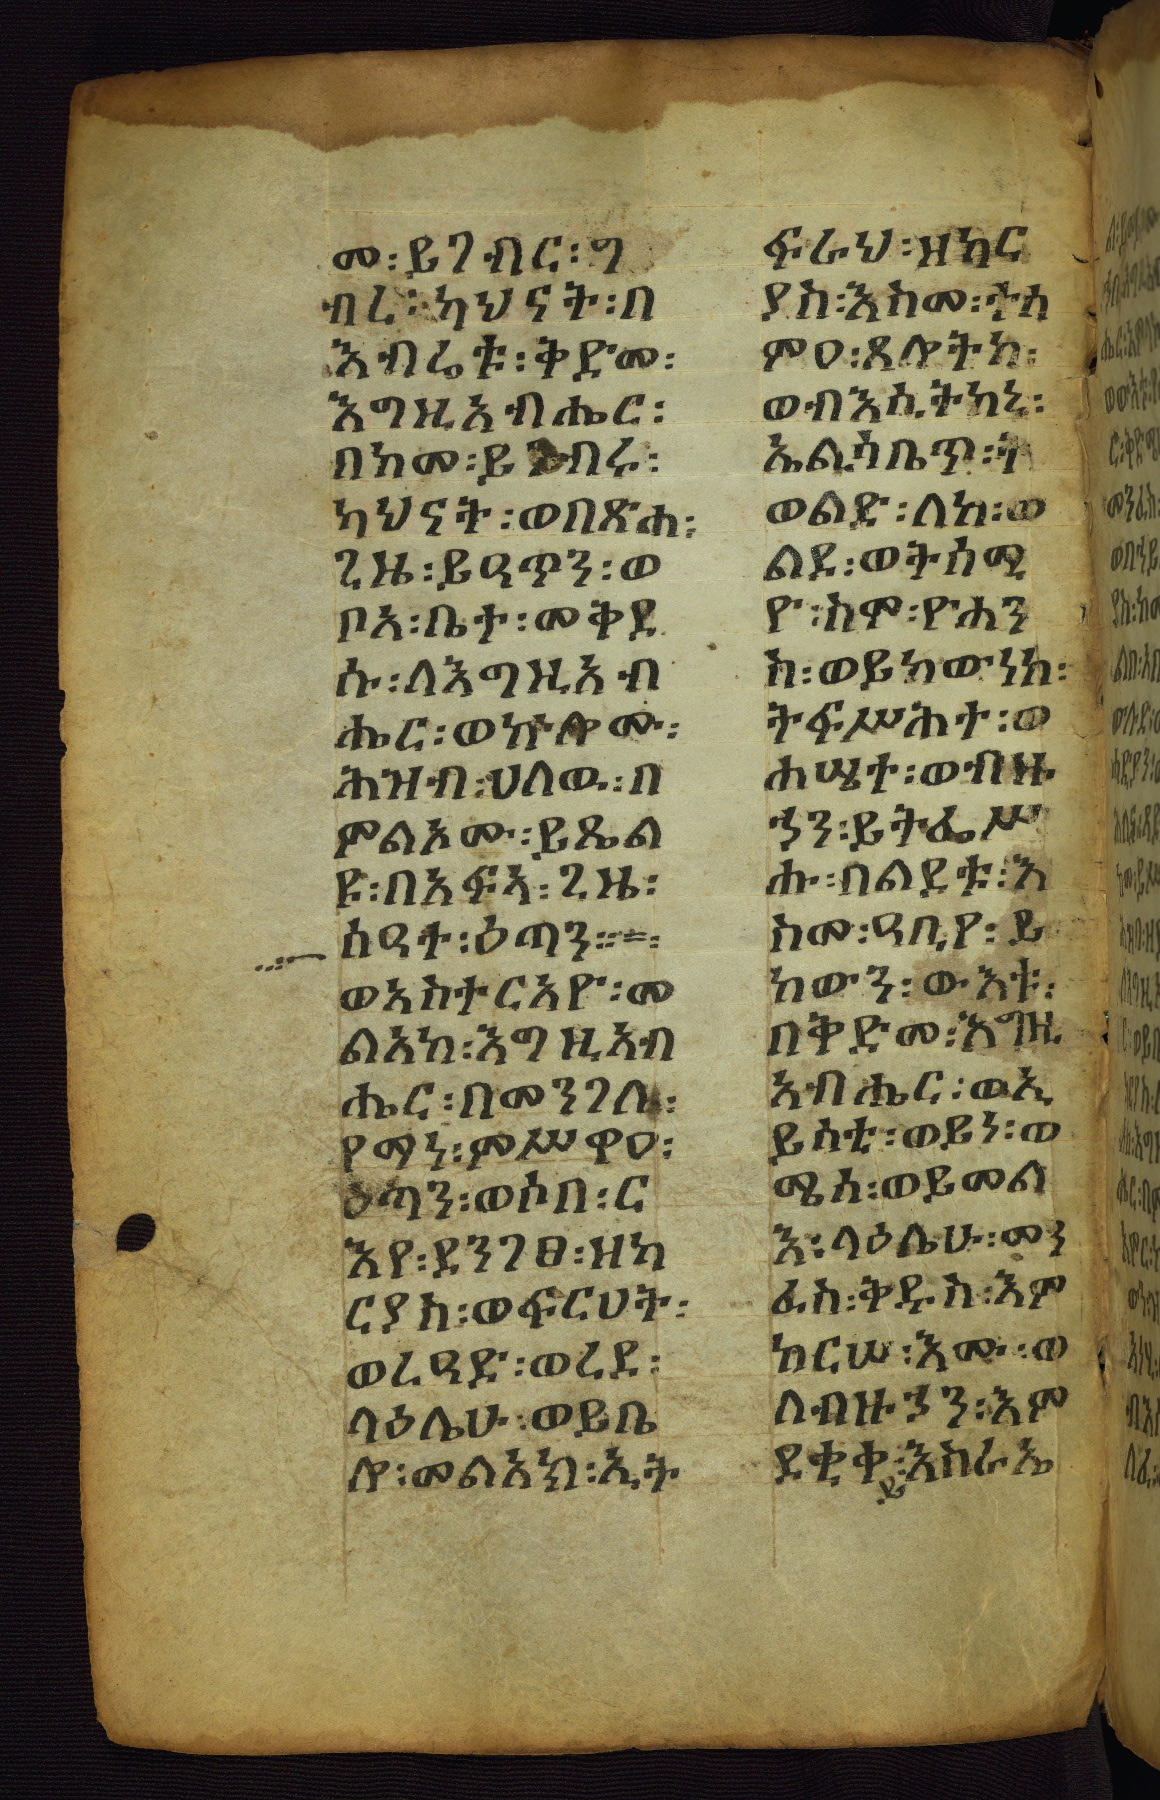 መ፡ይገብር፡ግ
ብረ፡ካህናት፡በ
እብሬቱ፡ቅድመ፡
እግዚአብሔር፡
በከመ፡ይገብሩ፡
ካህናት፡ወበጽሐ፡
ጊዜ፡ይዕጥን፡ወ
ቦአ፡ቤተ፡መቅደ
ሱ፡ለእግዚአብ
ሔር፡ወኵሎሙ፡
ሕዝብ፡ህለዉ፡በ
ምልኦሙ፡ይጼል
ዩ፡በአፍኣ፡ጊዜ፡
ሰዓተ፡ዕጣን፡፡=፡
ወአስተርአዮ፡መ
ልአከ፡እግዚአብ
ሔር፡በመንገለ፡
የማነ፡ምሥዋዐ፡
ዕጣን፡ወሶበ፡ር
እየ፡ደንገፀ፡ዘካ
ርያስ፡ወፍርሀት፡
ወረዓድ፡ወረደ፡
ላዕሌሁ፡ወይቤ
ሎ፡መልአክ፡ኢት
ፍራህ፡ዘካር
ያስ፡እስመ፡ተሰ
ምዐ፡ጸሎትከ፡
ወብእሲትከኒ፡
ኤልሳቤጥ፡ት
ወልድ፡ለከ፡ወ
ልደ፡ወትሰሚ
ዮ፡ስሞ፡ዮሐን
ስ፡ወይከውነከ፡
ትፍሥሕተ፡ወ
ሐሤተ፡ወብዙ
ኃን፡ይትፌሥ
ሑ፡በልደቱ፡እ
ስመ፡ዓቢየ፡ይ
ከውን፡ውእቱ፡
በቅድመ፡እግዚ
አብሔር፡ወኢ
ይሰቲ፡ወይነ፡ወ
ሜሰ፡ወይመል
እ፡ላዕሌሁ፡መን
ፈስ፡ቅዱስ፡እም
ከርሠ፡እሙ፡ወ
ለብዙኃን፡እም
ደቂቀ፡እስራኤ